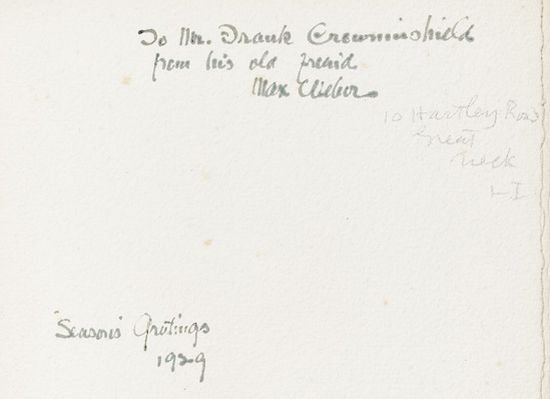 To Mr. Frank Crowninshield
from his old friend
Max Weber
10 Hartley Road
Great
Neck
L I
Season's Greetings
1929